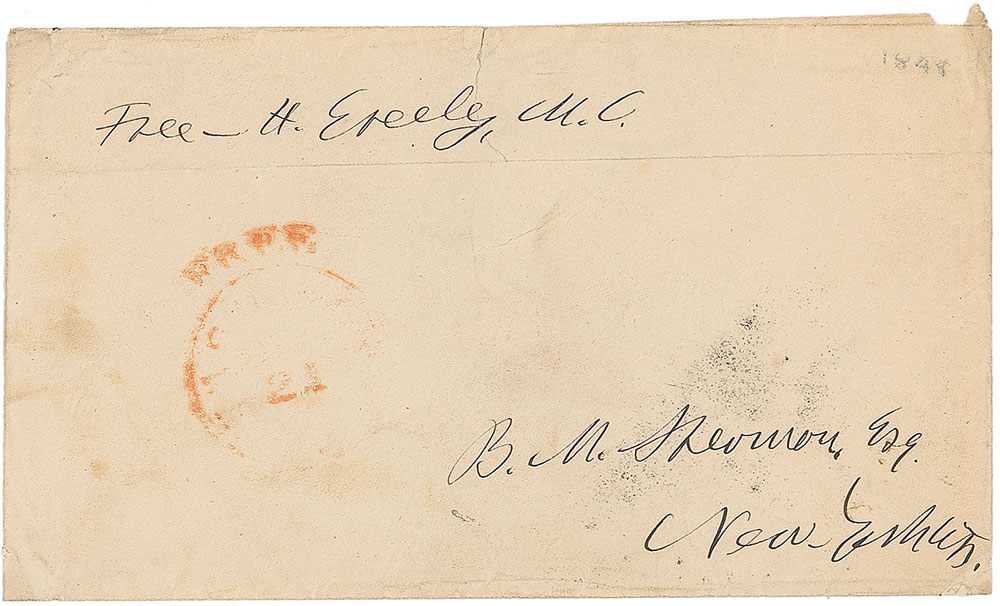 1848
Free – H. Greeley, M.C.
FREE
21
B. M. Esq.
New-York City.